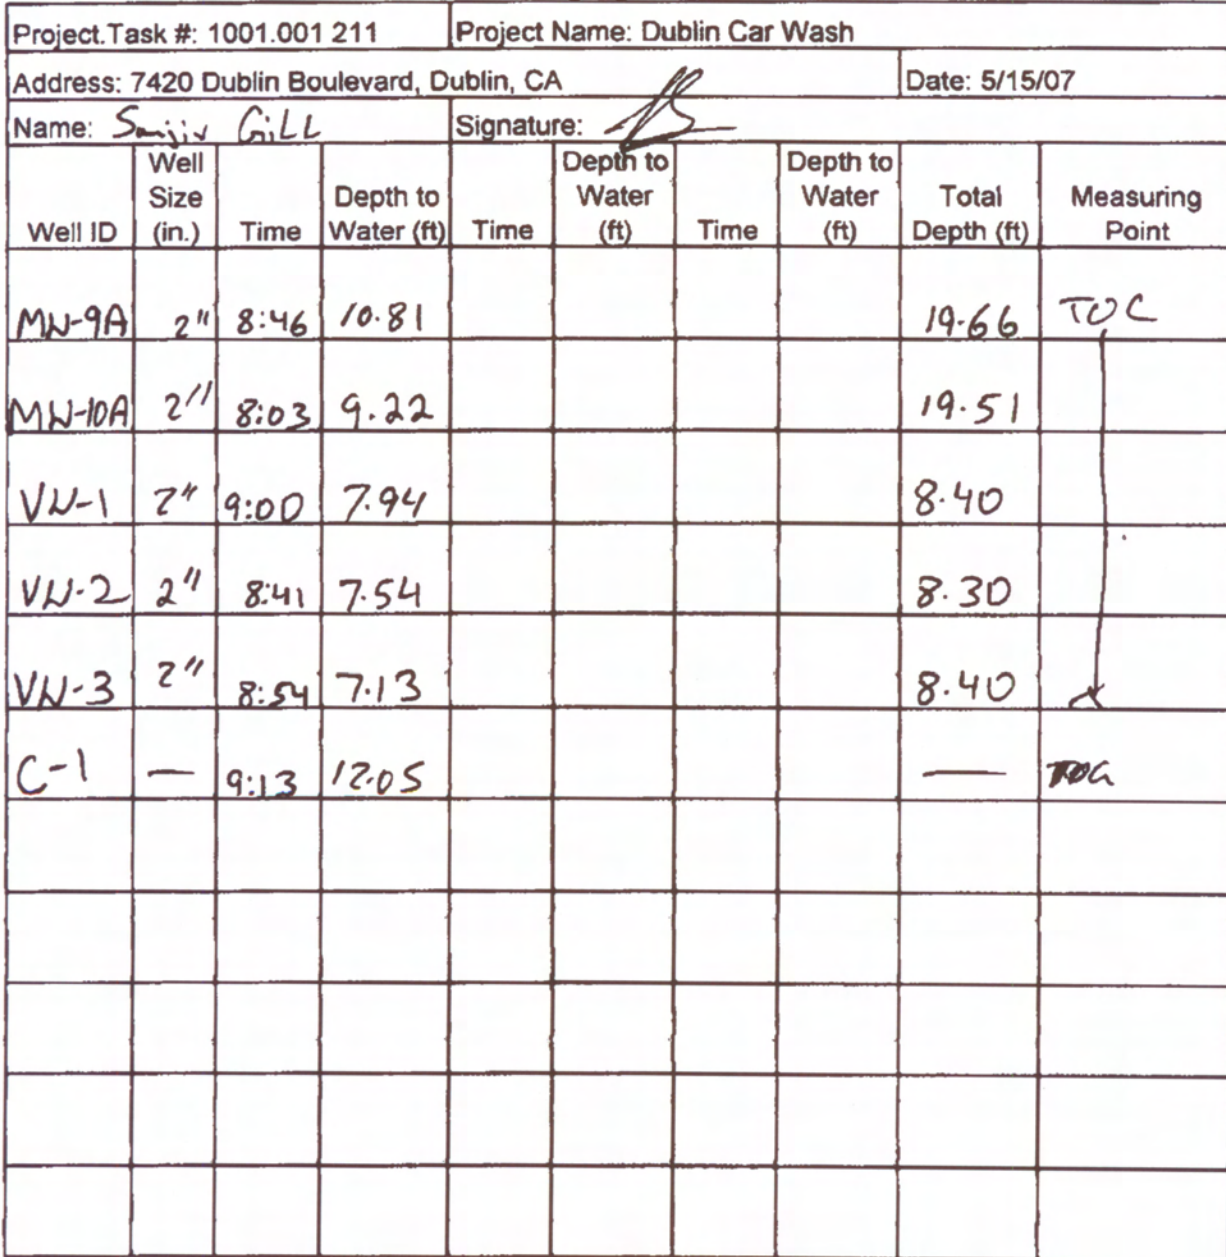 Project.Task #: 1001.001 211 Project Name: Dublin Car Wash
Address: 7420 Dublin Boulevard, Dublin, CA Date: 5/15/07
Name: Sanjiv GiLL Signature:
Well ID Well Size (in.) Time Depth to Water (ft) Time Depth to Water (ft) Time Depth to Water (ft) Total Depth (ft) Measuring Point
MW-9A 2" 8:46 10.81 19.66 TOC
MW-10A 2" 8:03 9.22 19.51
VW-1 2" 9:00 7.94 8.40
VW-2 2" 8:41 7.54 8.30
VW-3 2" 8:54 7.13 8.40
C-1 — 9:13 12.05 —